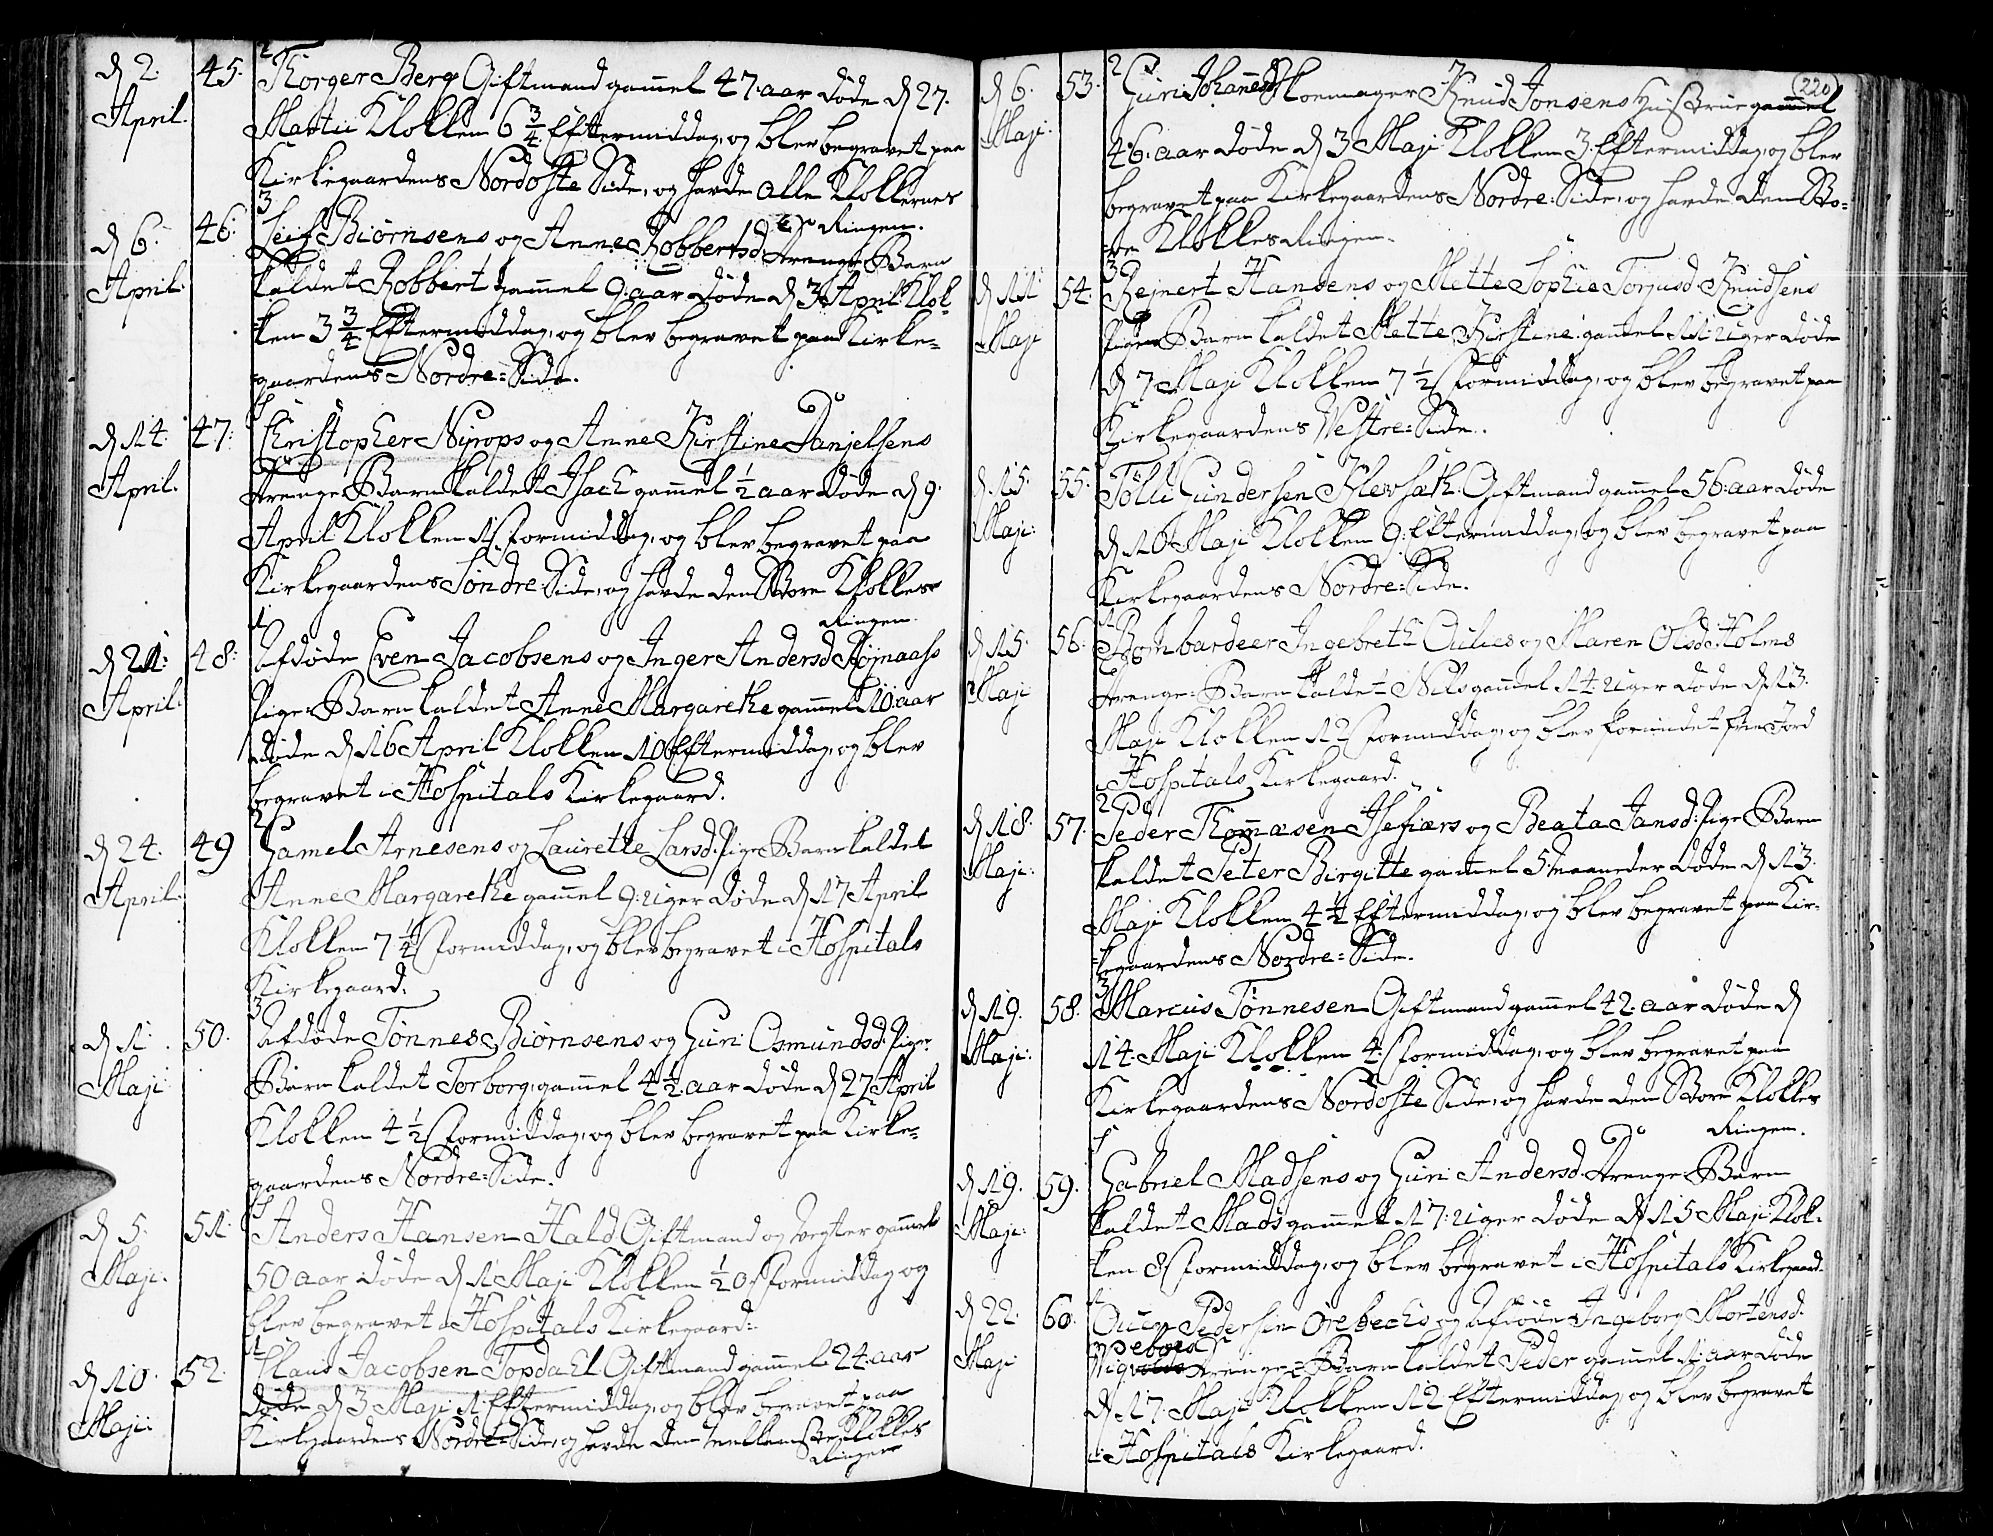 d 2. April. 45. Torger Berg Giftmand gammel 47. aar døde d 27.
Martii Klokken 6 3/4 Eftermiddag, og blev begravet paa
Kirkegaardens Nordoste Side, og havde Alle Klokkernes
Ringen.
d 6. April. 46. Leif Biørnsens og Anne Robbertsd. Drenge Barn
kaldet Robbert gammel 9. aar døde d 3 April Klok-
ken 3 3/4 Eftermiddag, og blev begravet paa Kirke-
gaardens Nordre-Side.
d 14. April. 47. Christopher Nyrops og Anne Kirstine Danjelsens
Drenge Barn kaldet Isach gammel 1/2 aar døde d 9.
April Klokken 1 Formiddag, og blev begravet paa
Kirkegaardens Søndre Side, og havde den Store Klokkes
Ringen.
d 21. April. 48. Afdøde Even Jacobsens og Inger Andersd. Højnaass
Pige Barn kaldet Anne Margarethe gammel 10 aar
døde d 16 April Klokken 10 Eftermiddag, og blev
begravet i Hospitals Kirkegaard.
d 24. April. 49 Gamel Arnesens og Laurette Larsd. Pige Barn kaldet
Anne Margarethe gammel 9. uger døde d 17 April
Klokken 7 1/4 Formiddag, og blev begravet i Hospitals
Kirkegaard.
d 1. Maji 50. Afdøde Tønnes Biørnsens og Guri Osmundsd. Pige
Barn kaldet Torborg gammel 4 1/2 aar døde d 27 April
Klokken 4 1/2 Formiddag, og blev begravet paa Kirke-
gaardens Nordre-Side.
d 5. Maji. 51. Anders Hansen Hald Giftmand og Vegter gammel
50 aar døde d 1 Maji Klokken 1/2 0 Formiddag og
blev begravet i Hospitals Kirkegaard.
d 10. Maji 52. Claus Jacobsen Topdahl Giftmand gammel 24. aar
døde d 3 Maji 1 Eftermiddag, og blev begravet paa
Kirkegaardens Nordre-Side, og havde den mellemste Klokkes
Ringen
(220)
d 6. Maji. 53. Guri Johannesd. Skoemager Knud Jonsens Hustrue gammel
46. aar døde d 3 Maji Klokken 3. Eftermiddag, og blev
begravet paa Kirkegaardens Nordre-Side, og havde den Sto-
re Klokkes Ringen.
d 11 Maji 54. Rejnert Hansens og Mette Sophie Torjusd. Knudsens
Pige Barn kaldet Mette Kirstine gammel 11. uger døde
d 7 Maji Klokken 7 1/2 Formiddag, og blev begravet paa
Kirkegaardens Vestre-Side.
d. 15. Maji. 55. Tølli Gundersen Klevsæth. Giftmand gammel 56. aar døde
d 10 Maji Klokken 9. Eftermiddag, og blev begravet paa
Kirkegaardens Nordre-Side.
d 15. Maji 56. Bombardeer Ingebreth Ouües og Maren Olsd. Holms
Drenge-Barn kaldet Nils gammel 14. uger døde d 13.
Maji Klokken 12 Formiddag, og blev forundet frie Jord
i Hospitals Kirkegaard.
d 18. Maji. 57. Peder Thommesen Isefiærs og Beata Jansd. Pige Barn
kaldet Peter Birgitte gammel 5. maaneder døde d 13.
Maji Klokken 4 1/2 Eftermiddag, og blev begravet paa Kir-
kegaardens Nordre-Side.
d 19. Maji. 58. Marcus Tønnesen Giftmand gammel 42. aar døde d
14. Maji Klokken 4. Formiddag, og blev begravet paa
Kirkegaardens Nordoste Side, og havde den Store Klokkes
Ringen.
d 19. Maji. 59. Gabriel Madsens og Guri Andersd. Drenge Barn
kaldet Mads gammel 17. uger døde d 15 Maji Klok-
ken 8 Formiddag, og blev begravet i Hospitals Kirkegaard.
d 22. Maji 60. Ouen Pedersen Orebechs og Afdøde Ingeborg Mortensd.
Drenge-Barn kaldet Peder gammel 1. aar døde
d 17. Maji Klokken 12 Eftermiddag, og blev begravet
i Hospitals Kirkegaard.